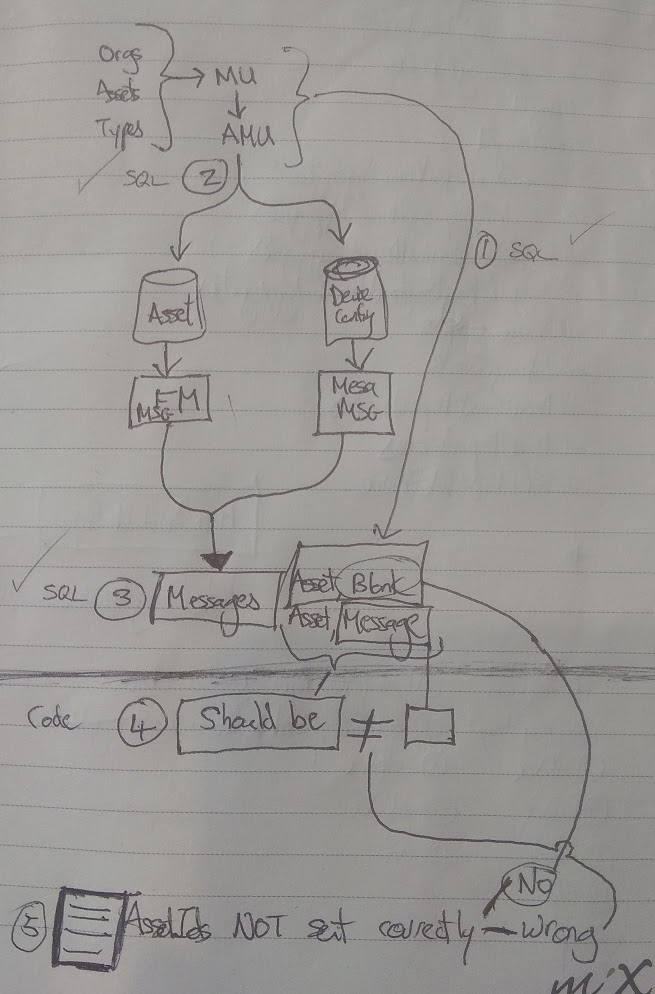 Orgs
Assets
Types
MU
AMU
SQL 2
1 SQL
Asset
Device
Config
FM
MSG
Mesa
MSG
SQL 3 Messages
Asset, Blank
Asset, Message
Code 4 Should be ≠
No
5 AssetIds NOT set correctly wrong
mix